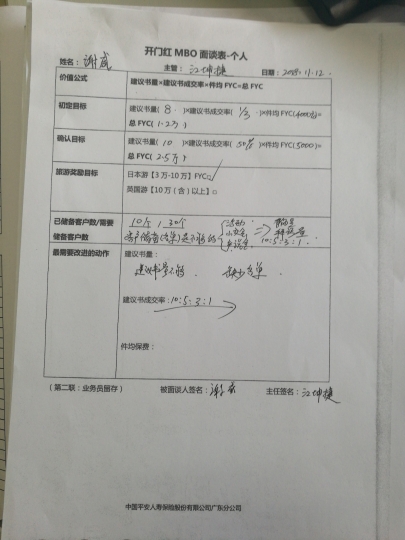 开门红 MBO 面谈表-个人
姓名：谢威 主管：江坤捷 日期：2018.11.12.
价值公式 建议书量×建议书成交率×件均 FYC=总 FYC
初定目标 建议书量( 8 )×建议书成交率( 1/3 )×件均 FYC(4000)=
总 FYC( 1.2万 )
确认目标 建议书量( 10 )×建议书成交率( 50% )×件均 FYC(5000)=
总 FYC( 2.5万 )
旅游奖励目标 日本游【3 万-10 万】FYC□✓
英国游【10 万（含）以上】□
已储备客户数/需要
储备客户数
10万 30个
10:5:3:1.
最需要改进的动作 建议书量：
建议书量不够 缺少名单.
建议书成交率：10:5:3:1
件均保费：
（第二联：业务员留存） 被面谈人签名：谢威 主任签名：江坤捷
中国平安人寿保险股份有限公司广东分公司